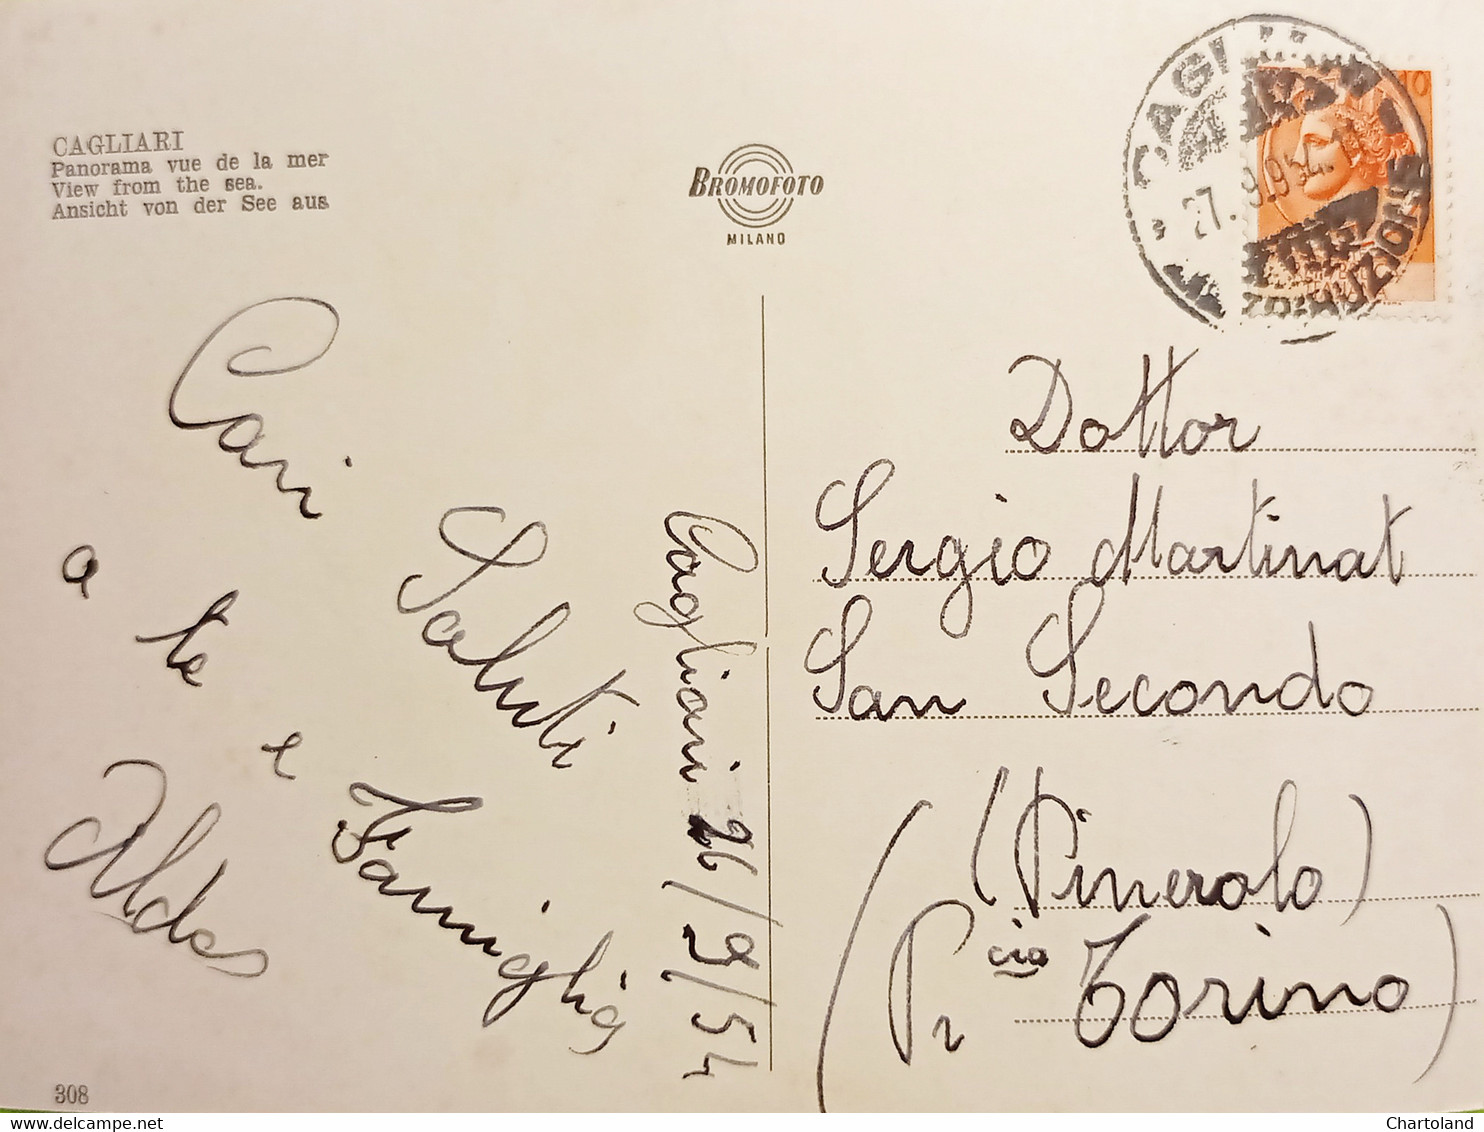 CAGLIARI
Panorama vue de la mer
View from the sea.
Ansicht von der See aus
BROMOFOTO
MILANO
10
27.9.954.
Cari Saluti
a te e Famiglia
Aldo
Cagliari 26/9/54
Dottor
Sergio Martinat
San Secondo
(Pinerolo)
(Pr cia Torino)
308
Chartoland